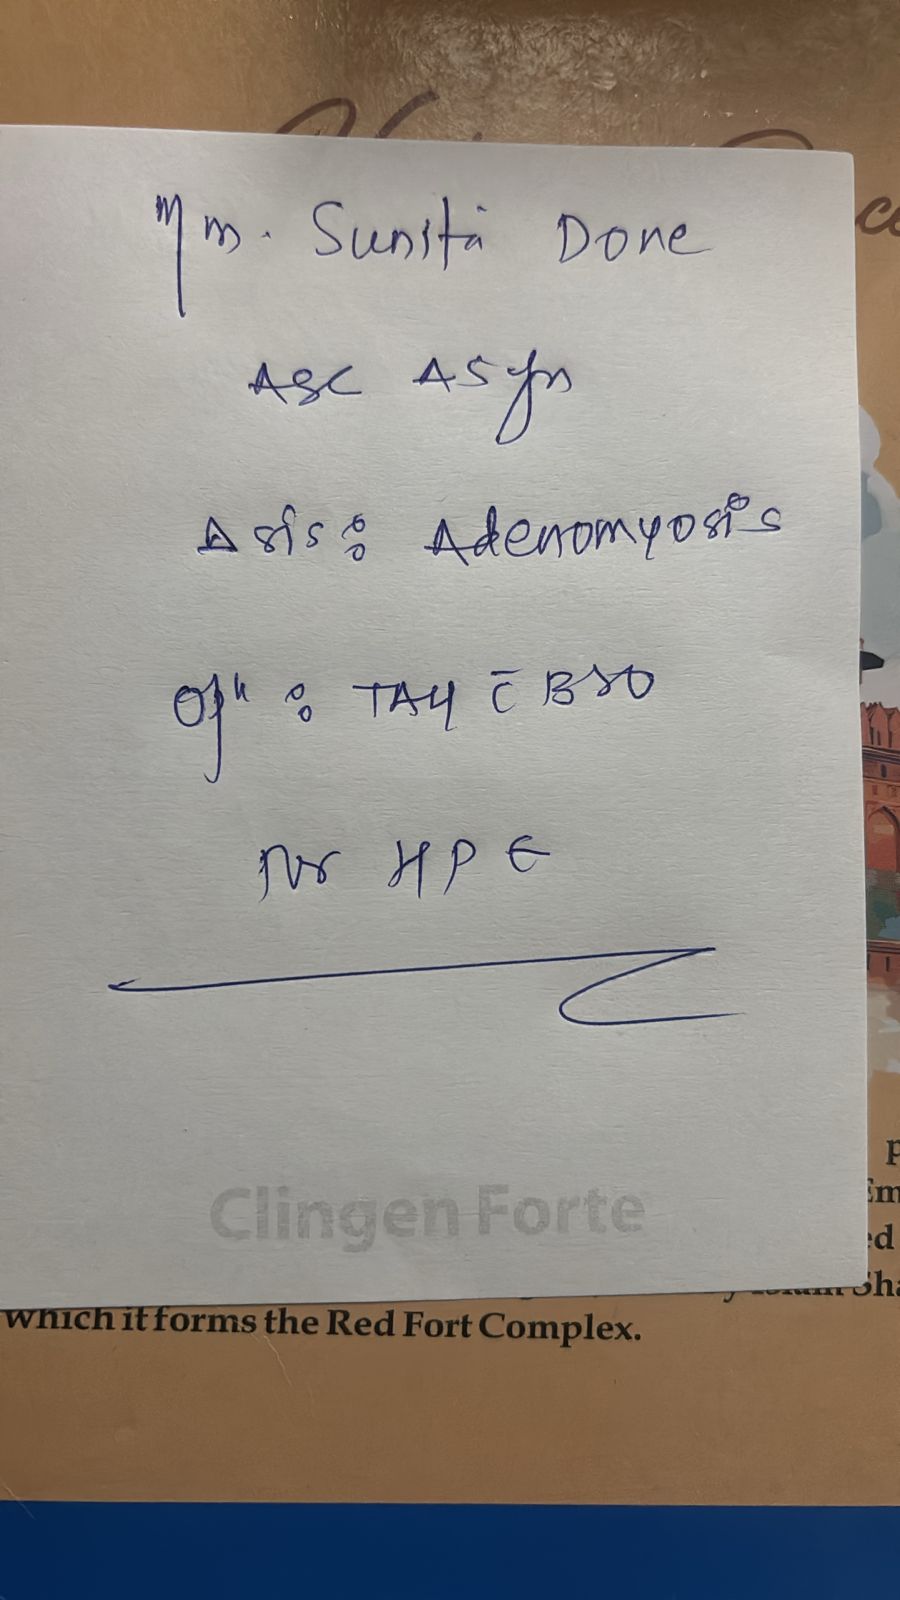 Mrs. Sunita Done
Age 45yrs
Δsis: Adenomyosis
Opⁿ: TAH c̄ BSO
for HPE
Clingen Forte
which it forms the Red Fort Complex.